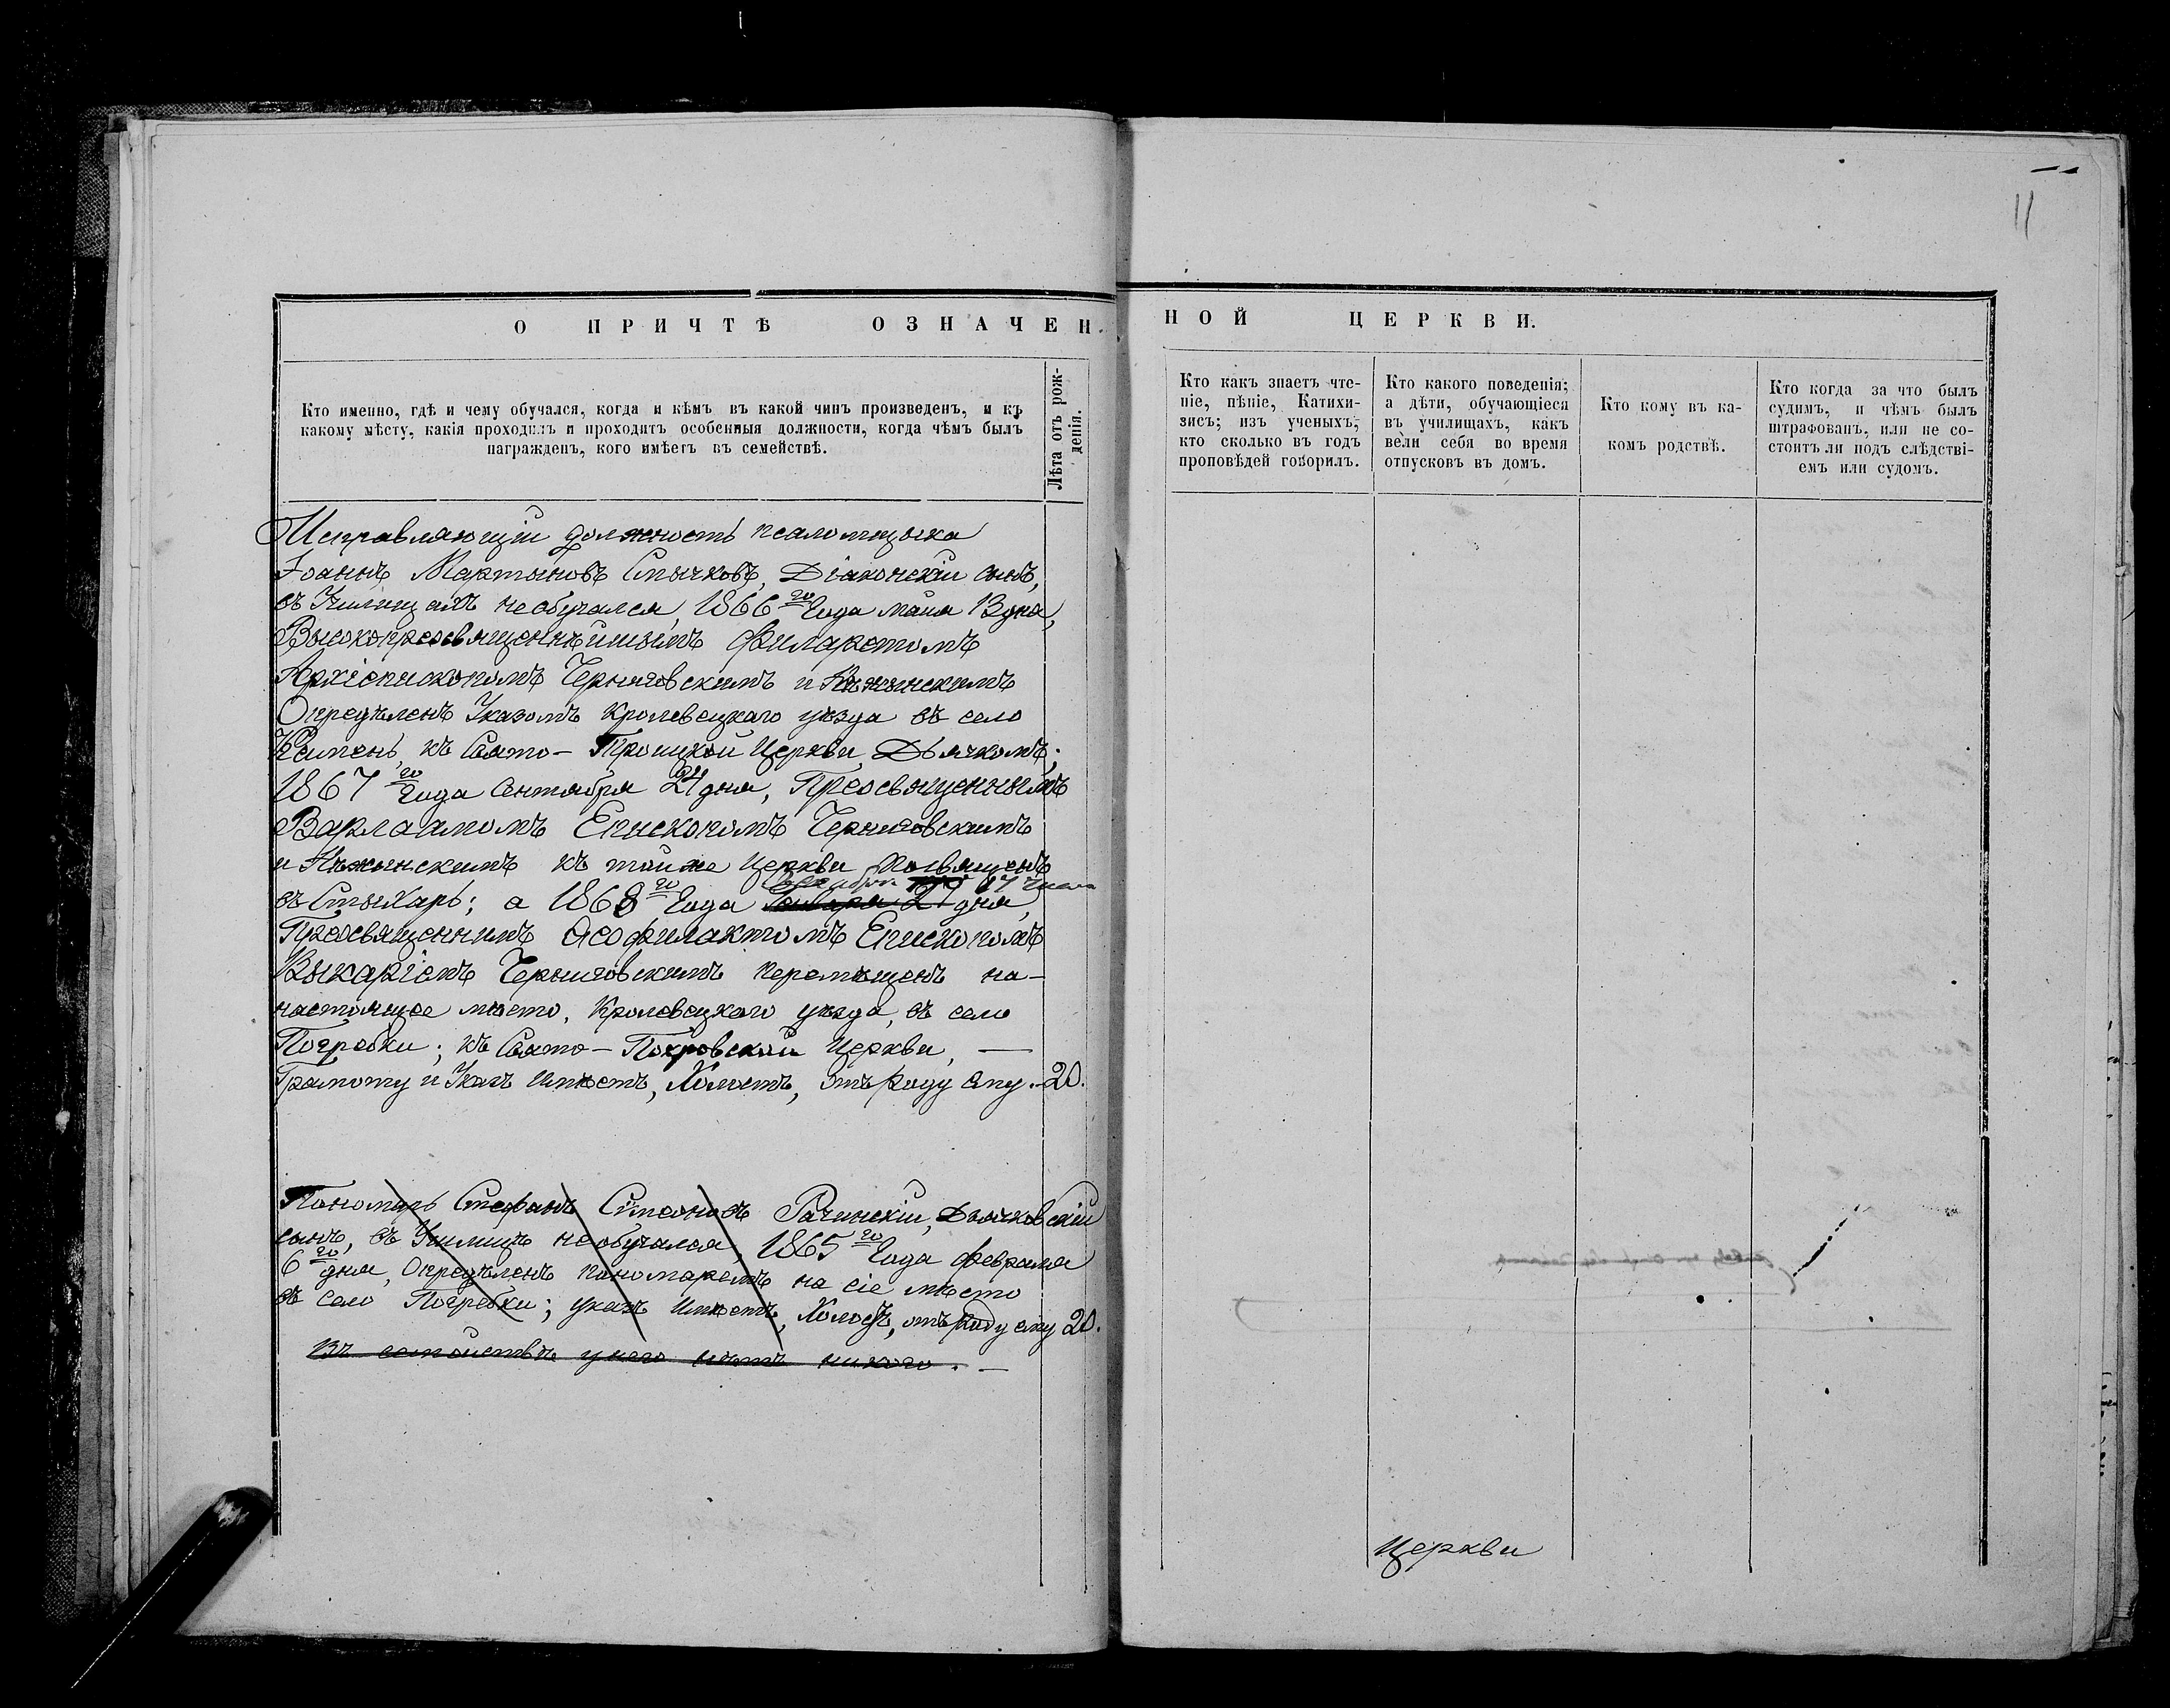 11
О ПРИЧТѢ ОЗНАЧЕН-
НОЙ ЦЕРКВИ.
Кто именно, гдѣ и чему обучался, когда и кѣмъ въ какой чинъ произведенъ, и къ
какому мѣсту, какія проходилъ и проходитъ особенныя должности, когда чѣмъ былъ
награжденъ, кого имѣетъ въ семействѣ.
Лѣта отъ рож-
денія.
Кто какъ знаетъ чте-
ніе, пѣніе, Катихи-
зисъ; изъ ученыхъ,
кто сколько въ годъ
проповѣдей говорилъ.
Кто какого поведенія;
а дѣти, обучающіеся
въ училищахъ, какъ
вели себя во время
отпусковъ въ домъ.
Кто кому въ ка-
комъ родствѣ.
Кто когда за что былъ
судимъ, и чѣмъ былъ
штрафованъ, или не со-
стоитъ ли подъ слѣдстві-
емъ или судомъ.
Исправляющій должность псаломщыка
Іоаннъ Мартыновъ Смычковъ, Діаконскій сынъ,
въ Училищахъ необучался, 1866го Года маия 13 дня,
Высокопреосвященнѣйшымъ Филаретомъ
Архіепископомъ Черниговскимъ и Нѣжынскимъ
Опредѣленъ Указомъ Кролевецкаго уѣзда въ село
къ Свято-Троицкой Церкви, Дьячкомъ;
1867го Года Сентября 24 дня, Преосвященнымъ
Варлаамомъ Епископомъ Черниговскимъ
и Нѣжынскимъ къ тойже Церкви Посвященъ
17 числа
въ Стыхарь; а 1868го Года Января 27 дня,
Преосвященнимъ Ѳеофилактомъ Епископомъ
Выкаріемъ Черниговскимъ перемѣщенъ на-
настоящее мѣсто, Кролевецкаго уѣзда, въ село
Погребки; къ Свято-Покровской Церкви, —
Грамоту и Указъ имѣетъ, Холостъ, Отъ Роду ему. 20.
Пономарь Стефанъ Симеоновъ Рачинскій, Дьячковскій
сынъ, въ Училищѣ необучался, 1865го Года февраля
6го дня, Опредѣленъ пономаремъ на сіе мѣсто
въ село Погребки; указъ имѣетъ, Холостъ, отъ Роду ему 20.
Въ семействѣ унего нѣтъ никого. —
Церкви